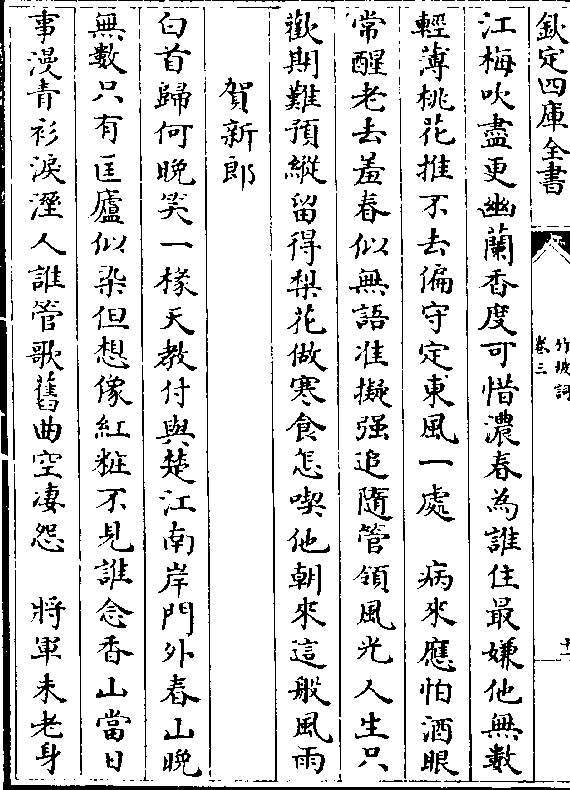 欽定四庫全書
竹坡詞
卷三
江梅吹盡更幽蘭香度可惜濃春為誰住最嫌他無數
輕薄桃花推不去偏守定東風一處　病來應怕酒眼
常醒老去羞春似無語准擬强追隨管領風光人生只
歡期難預縱留得梨花做寒食怎喫他朝來這般風雨
賀新郎
白首歸何晚笑一椽天教付與楚江南岸門外春山晚
無數只有匡廬似染但想像紅粧不見誰念香山當日
事漫青衫淚溼人誰管歌舊曲空凄怨　將軍未老身